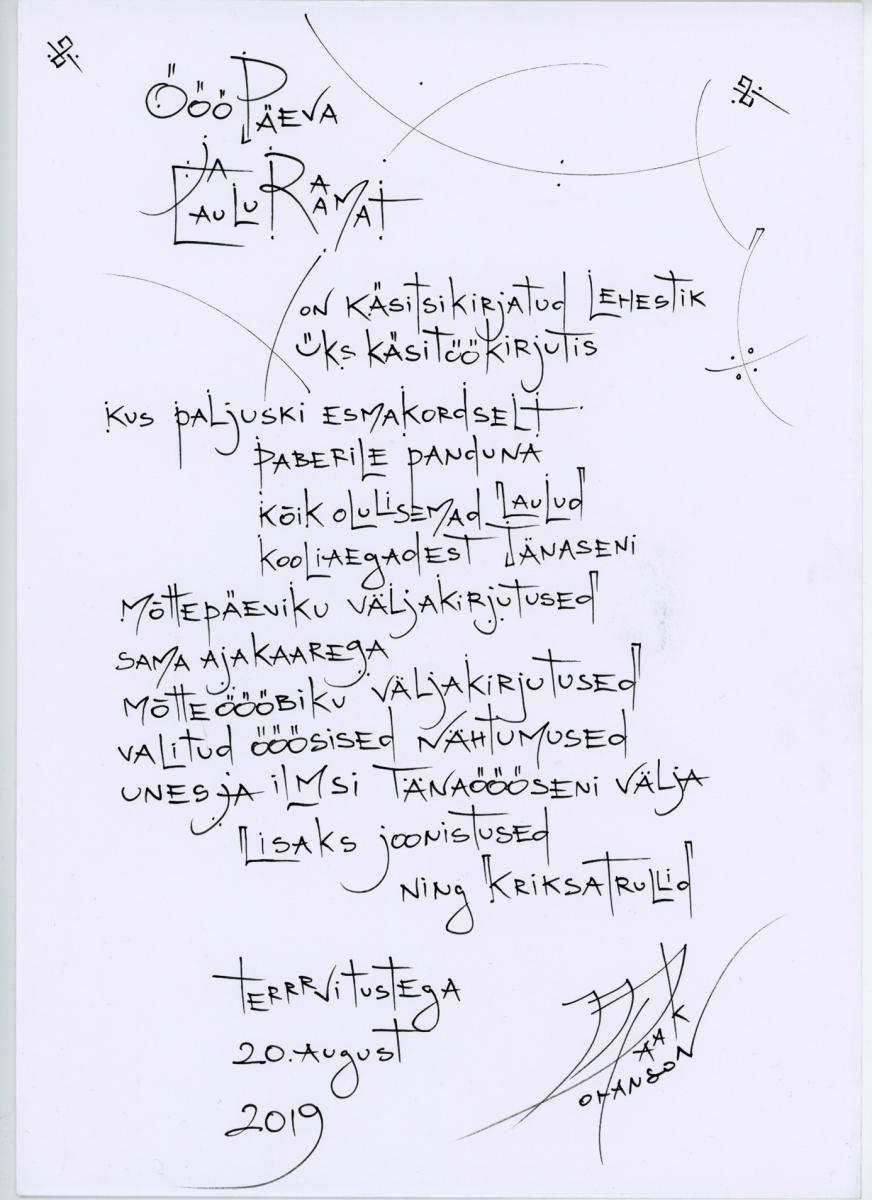 ÖÖÖPÄEVA
JA
LAULURAAMAT
ON KÄSITSIKIRJATUD LEHESTIK
ÜKS KÄSITÖÖKIRJUTIS
KUS PALJUSKI ESMAKORDSELT
PABERILE PANDUNA
KÕIK OLULISEMAD LAULUD
KOOLIAEGADEST TÄNASENI
MÕTTEPÄEVIKU VÄLJAKIRJUTUSED
SAMA AJAKAAREGA
MÕTTEÖÖÖBIKU VÄLJAKIRJUTUSED
VALITUD ÖÖÖSISED NÄHTUMUSED
UNES JA ILMSI TÄNAÖÖÖSENI VÄLJA
LISAKS JOONISTUSED
NING KRIKSATRULLID
TERRRVITUSTEGA
20. AUGUST
2019
JAAK
JOHANSON